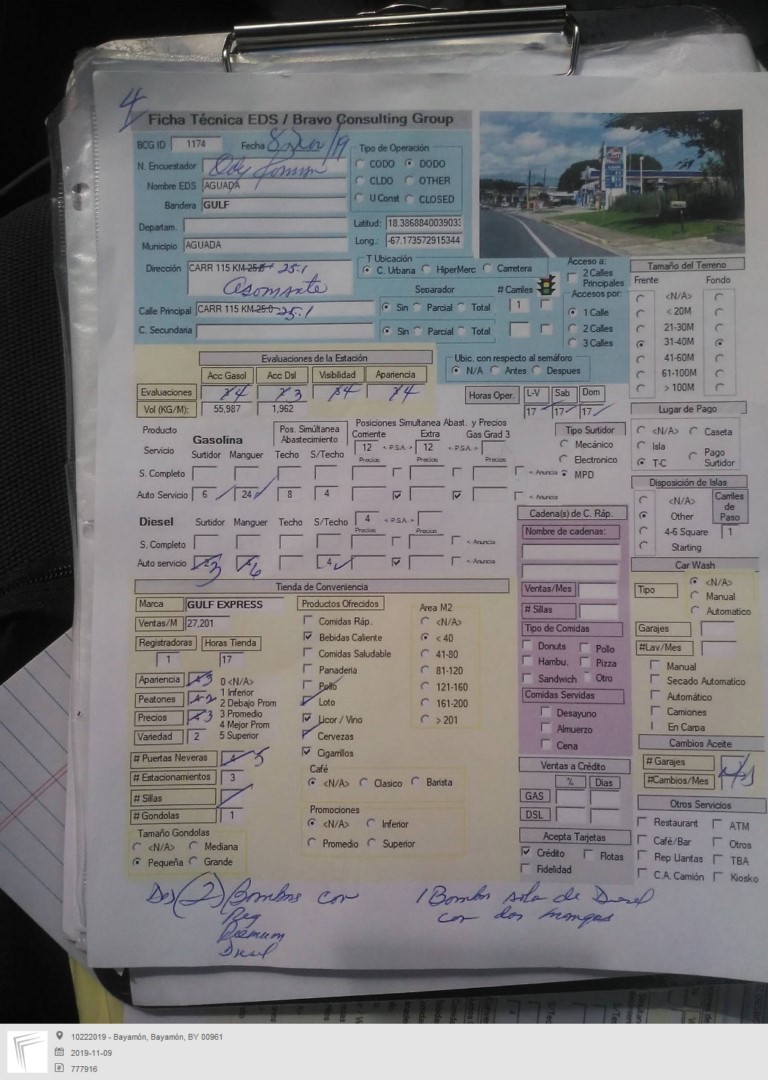 4
Ficha Técnica EDS / Bravo Consulting Group
BCG ID 1174 Fecha
N. Encuestador
Nombre EDS AGUADA
Bandera GULF
Tipo de Operación
CODO DODO
CLDO OTHER
U Const CLOSED
Departam.
Municipio AGUADA
Latitud: 18.3868840039033
Long.: -67.173572915344
Dirección CARR 115 KM 25.1
Asomante
T Ubicación
C. Urbana HiperMerc Carretera
Separador # Carriles
Calle Principal CARR 115 KM 25.0 25.1
Sin Parcial Total 1
C. Secundaria
Sin Parcial Total
Acceso a:
2 Calles Principales
Accesos por:
1 Calle
2 Calles
3 Calles
Tamaño del Terreno
Frente Fondo
<N/A>
< 20M
21-30M
31-40M
41-60M
61-100M
> 100M
Evaluaciones de la Estación
Acc Gasol Acc Dsl Visbilidad Apariencia
Evaluaciones 4 3 4 4
Vol (KG/M): 55,987 1,962
Ubic. con respecto al semáforo
N/A Antes Despues
Horas Oper. L-V Sab Dom
17 17 17
Lugar de Pago
<N/A> Caseta
Isla Pago Surtidor
T-C
Producto
Servicio Gasolina
Surtidor Manguer
Pos. Simúltanea Abastecimiento
Techo S/Techo
Posiciones Simultanea Abast. y Precios
Corriente Extra Gas Grad 3
12 < P.S.A. > 12 < P.S.A. >
Precios Precios Precios
S. Completo < Anuncia
Auto Servicio 6 24 8 4 < Anuncia
Tipo Surtidor
Mecánico
Electronico
MPD
Disposición de Islas
<N/A>
Other
4-6 Square
Starting
Carriles de Paso
1
Diesel Surtidor Manguer Techo S/Techo
4 < P.S.A. >
Precios Precios
S. Completo < Anuncia
Auto servicio 3 6 4 < Anuncia
Cadena(s) de C. Ráp.
Nombre de cadenas:
Ventas/Mes
# Sillas
Tipo de Comidas
Donuts Pollo
Hambu. Pizza
Sandwich Otro
Comidas Servidas
Desayuno
Almuerzo
Cena
Car Wash
Tipo <N/A>
Manual
Automatico
Garajes
#Lav/Mes
Manual
Secado Automatico
Automático
Camiones
En Carpa
Tienda de Conveniencia
Marca GULF EXPRESS
Ventas/M 27,201
Registradoras Horas Tienda
1 17
Apariencia 3
Peatones 2
Precios 3
Variedad 2
0 <N/A>
1 Inferior
2 Debajo Prom
3 Promedio
4 Mejor Prom
5 Superior
# Puertas Neveras 5
# Estacionamientos 3
# Sillas
# Gondolas 1
Tamaño Gondolas
<N/A> Mediana
Pequeña Grande
Productos Ofrecidos
Comidas Ráp.
Bebidas Caliente
Comidas Saludable
Panaderia
Pollo
Loto
Licor / Vino
Cervezas
Cigarrillos
Area M2
<N/A>
< 40
41-80
81-120
121-160
161-200
> 201
Café
<N/A> Clasico Barista
Promociones
<N/A> Inferior
Promedio Superior
Ventas a Crédito
% Dias
GAS
DSL
Acepta Tarjetas
Crédito Flotas
Fidelidad
Cambios Aceite
# Garajes
#Cambios/Mes
Otros Servicios
Restaurant ATM
Café/Bar Otros
Rep Llantas TBA
C.A. Camión Kiosko
Dos (2) Bombas con
Reg
Premium
Diesel
1 Bomba sola de Diesel
con dos mangas
10222019 - Bayamón, Bayamón, BY 00961
2019-11-09
777916